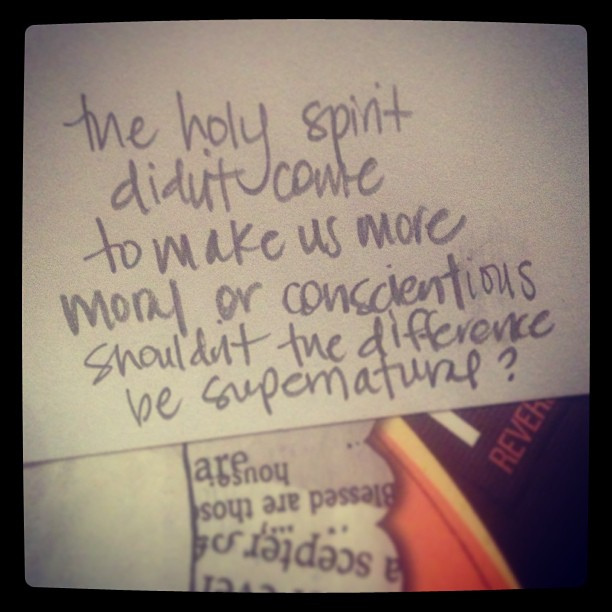 the holy spirit
didn't come
to make us more
moral or conscientious
shouldn't the difference
be supernatural?
REVER
are
hous
Blessed are thos
a scepter of
ever